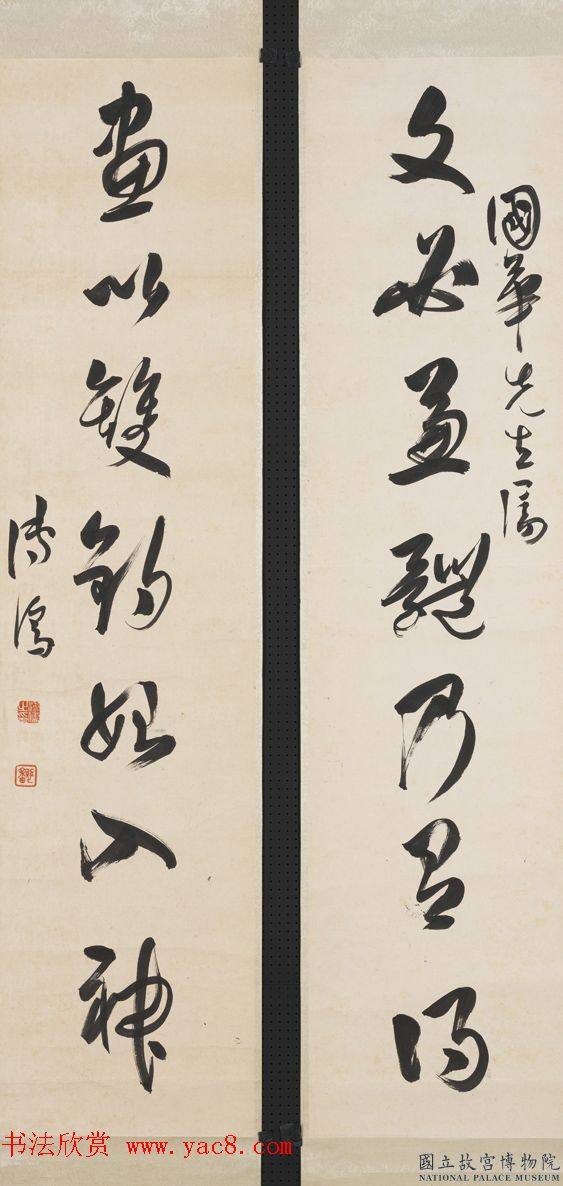 國華先生屬
文必兼體乃有得
畫以雙鉤始入神
溥儒
书法欣赏 www.yac8.com
國立故宮博物院
NATIONAL PALACE MUSEUM